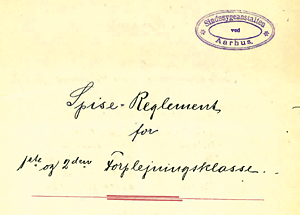 Sindssygeanstalten
ved
Aarhus.
Spise-Reglement
for
1ste og 2den Forplejningsklasse.